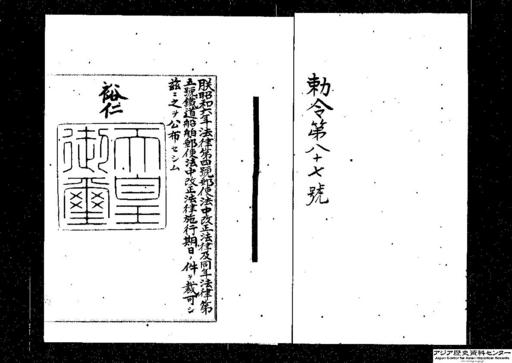 勅令第八十七號
朕昭和六年法律第四號郵便法中改正法律及同年法律第
五號鐵道船舶郵便法中改正法律施行期日ノ件ヲ裁可シ
茲ニ之ヲ公布セシム
裕仁
天皇
御璽
アジア歴史資料センター
Japan Center for Asian Historical Records